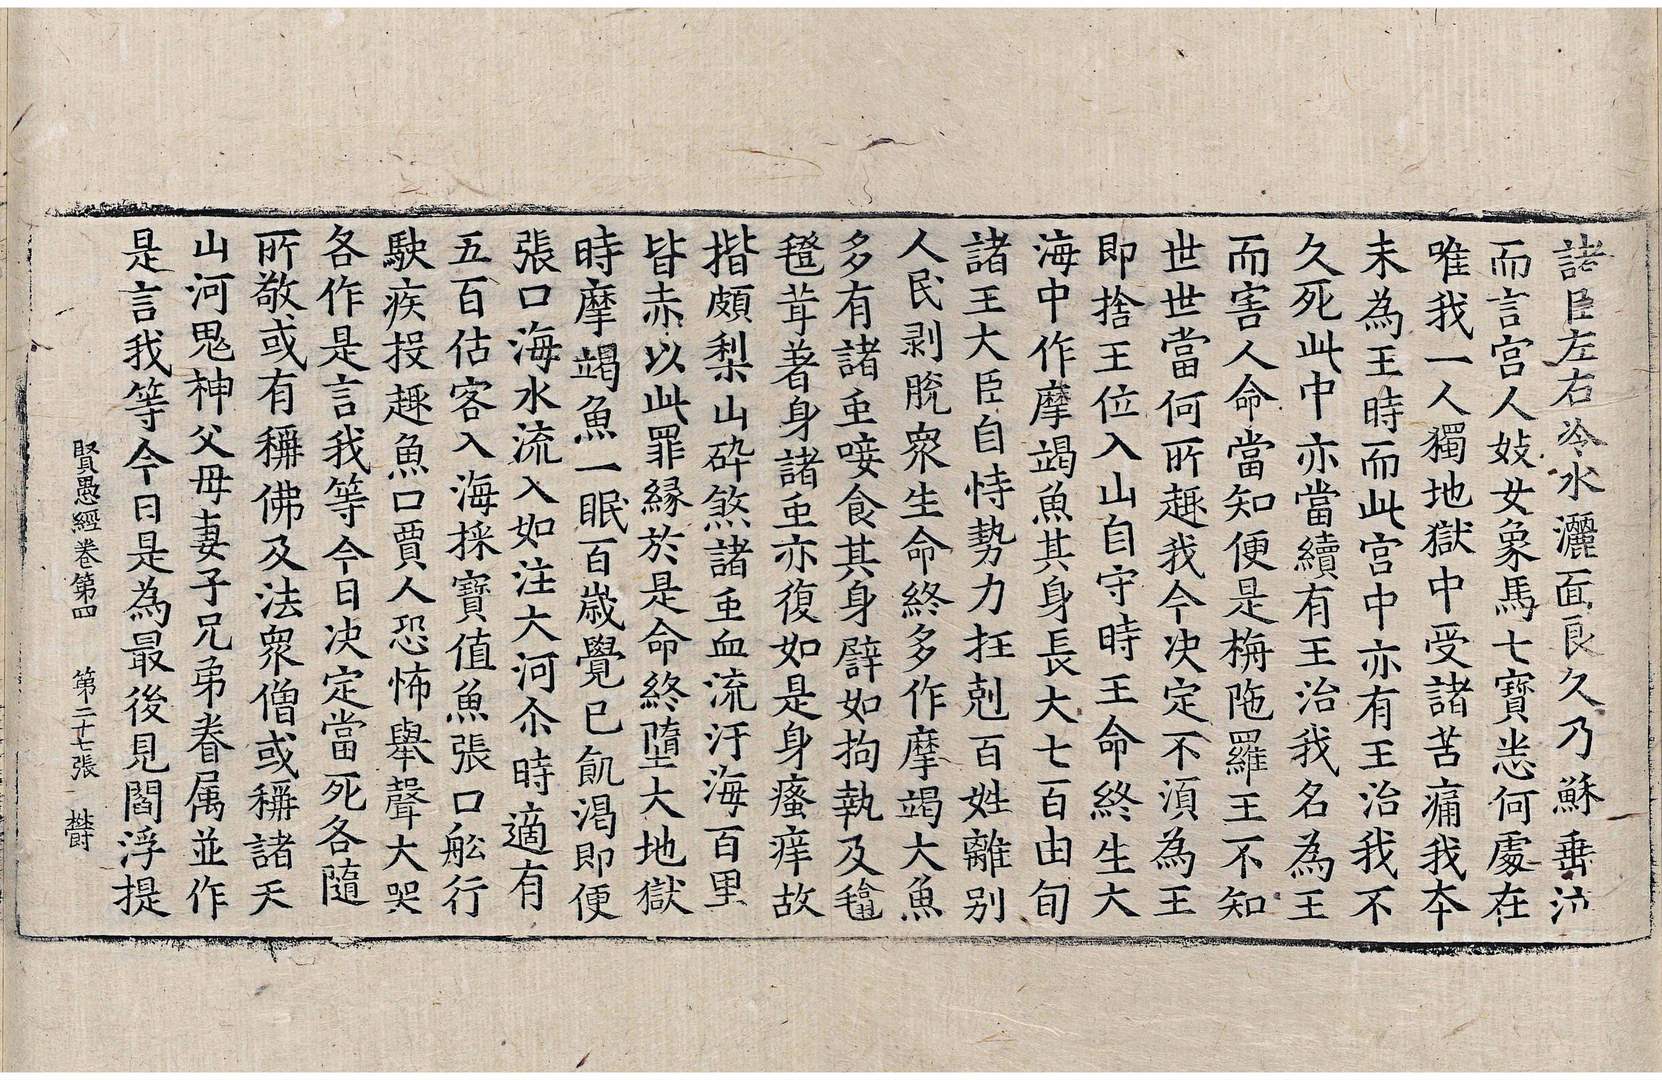 諸臣左右冷水灑面良久乃穌垂泣
而言宮人妓女象馬七寶悉何處在
唯我一人獨地獄中受諸苦痛我夲
未為王時而此宮中亦有王治我不
久死此中亦當續有王治我名為王
而害人命當知便是栴陁羅王不知
世世當何所趣我今决定不須為王
即捨王位入山自守時王命終生大
海中作摩竭魚其身長大七百由旬
諸王大臣自恃勢力抂剋百姓離別
人民剥脫衆生命終多作摩竭大魚
多有諸䖝唼食其身譬如拘執及氀
㲪茸著身諸䖝亦復如是身瘙痒故
揩頗梨山碎煞諸䖝血流汙海百里
皆赤以此罪緣於是命終墮大地獄
時摩竭魚一眠百歲覺已飢渴即便
張口海水流入如注大河尒時適有
五百估客入海採寶值魚張口舩行
駛疾投趣魚口賈人恐怖舉聲大哭
各作是言我等今日决定當死各隨
所敬或有稱佛及法衆僧或稱諸天
山河鬼神父母妻子兄弟眷属並作
是言我等今日是為最後見閻浮提
賢愚經卷第四 第二十七張 欝